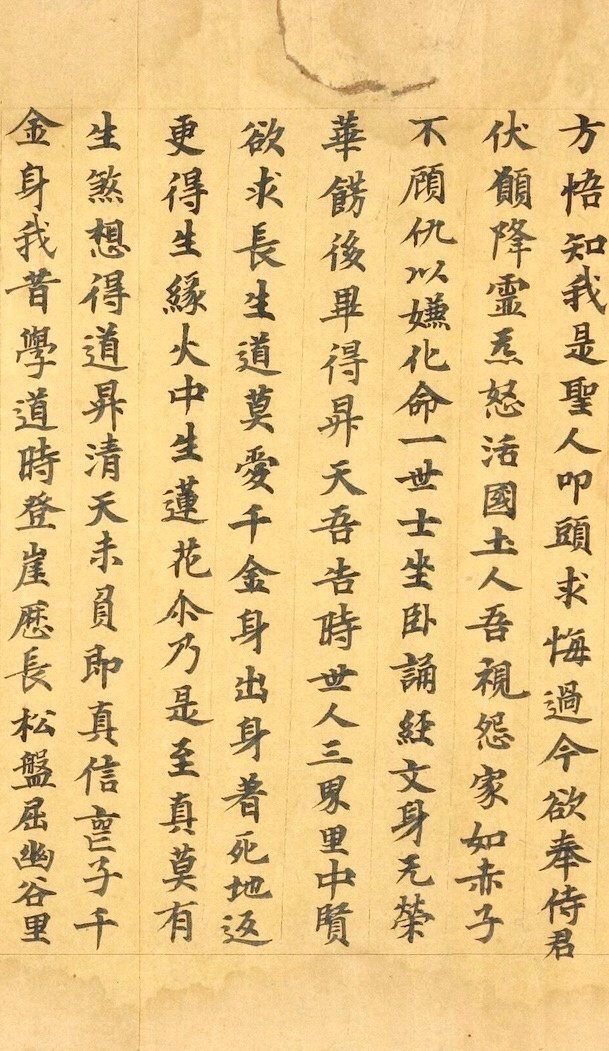 方悟知我是聖人叩頭求悔過今欲奉侍君
伏願降靈焘怒活國土人吾視怨家如赤子
不顧仇以嫌化命一世士坐卧誦經文身无榮
華餝後畢得昇天吾告時世人三界里中賢
欲求長生道莫愛千金身出身著死地返
更得生緣火中生蓮花尒乃是至真莫有
生煞想得道昇清天未負即真信子千
金身我昔學道時登崖歷長松盤屈幽谷里